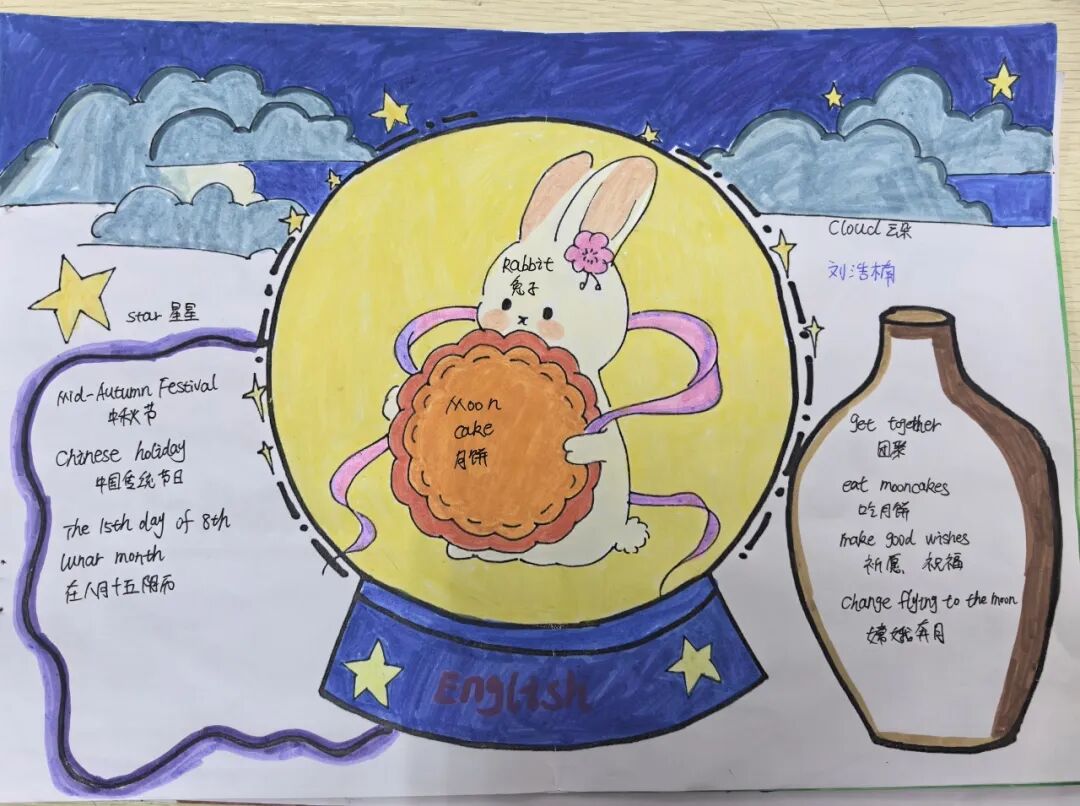 Cloud 云朵
刘浩楠
star 星星
Rabbit
兔子
Moon
cake
月饼
Mid-Autumn Festival
中秋节
Chinese holiday
中国传统节日
The 15th day of 8th
lunar month
在八月十五阴历
get together
团聚
eat mooncakes
吃月饼
make good wishes
祈愿、祝福
Change flying to the moon
嫦娥奔月
English